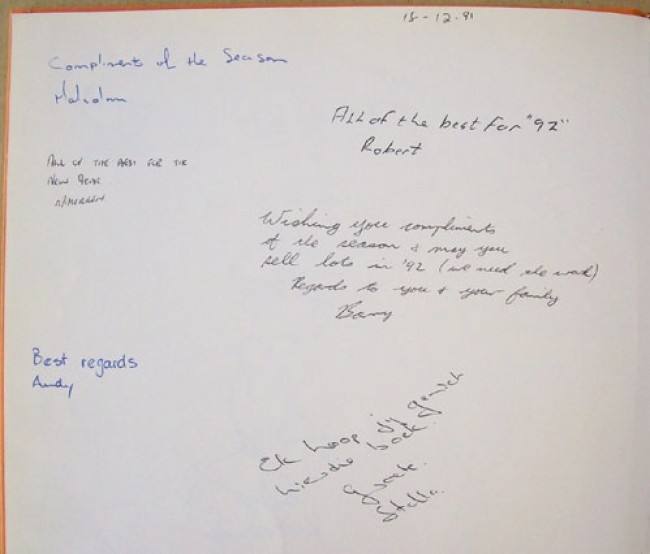 15-12-91
Compliments of the Season
Malcolm
All of the best for "92"
Robert
All of the best for the
New Year
Wishing you compliments
of the season & may you
sell lots in '92 (we need the work)
Regards to you & your family
Barry
Best regards
Andy
Ek hoop jy geniet
hierdie boek.
Groete.
Stella.